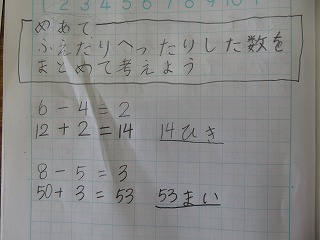 1 2 3 4 5 6 7 8 9 10
めあて
ふえたりへったりした数を
まとめて考えよう
6 - 4 = 2
12 + 2 = 14 14ひき
8 - 5 = 3
50 + 3 = 53 53まい